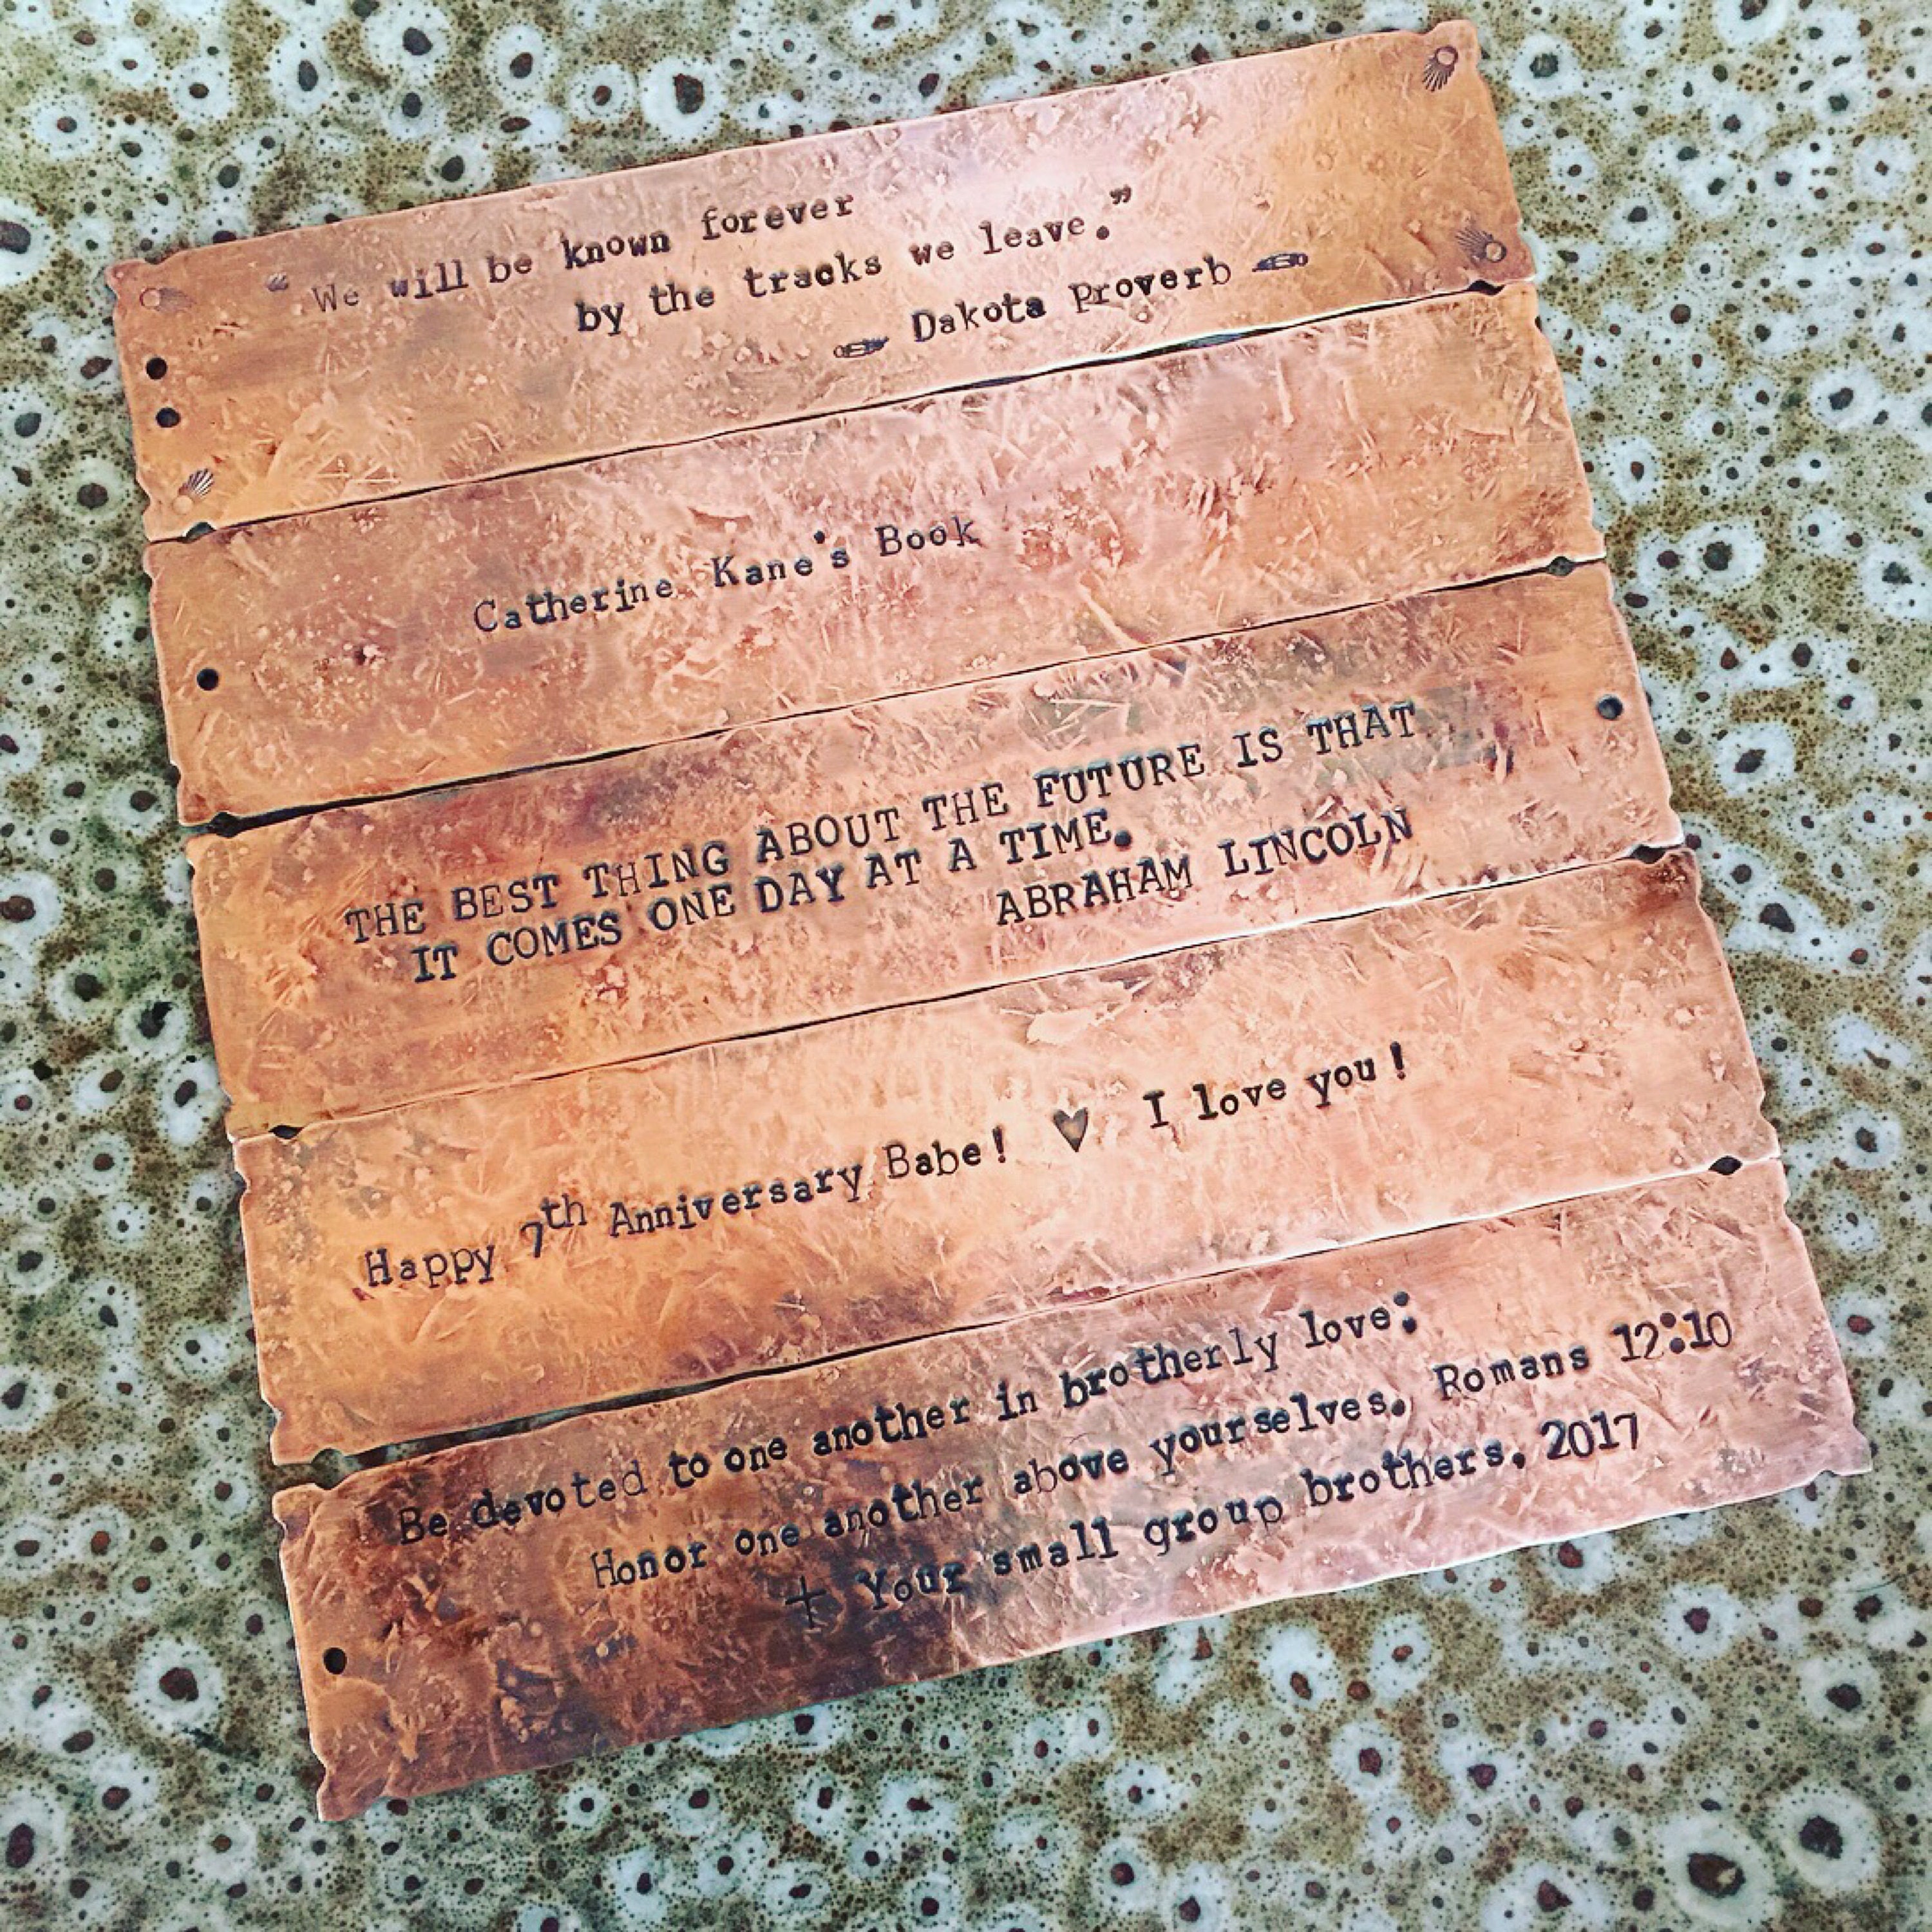 “ We will be known forever
by the tracks we leave.”
Dakota Proverb
Catherine Kane's Book
THE BEST THING ABOUT THE FUTURE IS THAT
IT COMES ONE DAY AT A TIME.
ABRAHAM LINCOLN
Happy 7th Anniversary Babe! ♥ I love you!
Be devoted to one another in brotherly love;
Honor one another above yourselves. Romans 12:10
+ Your small group brothers, 2017